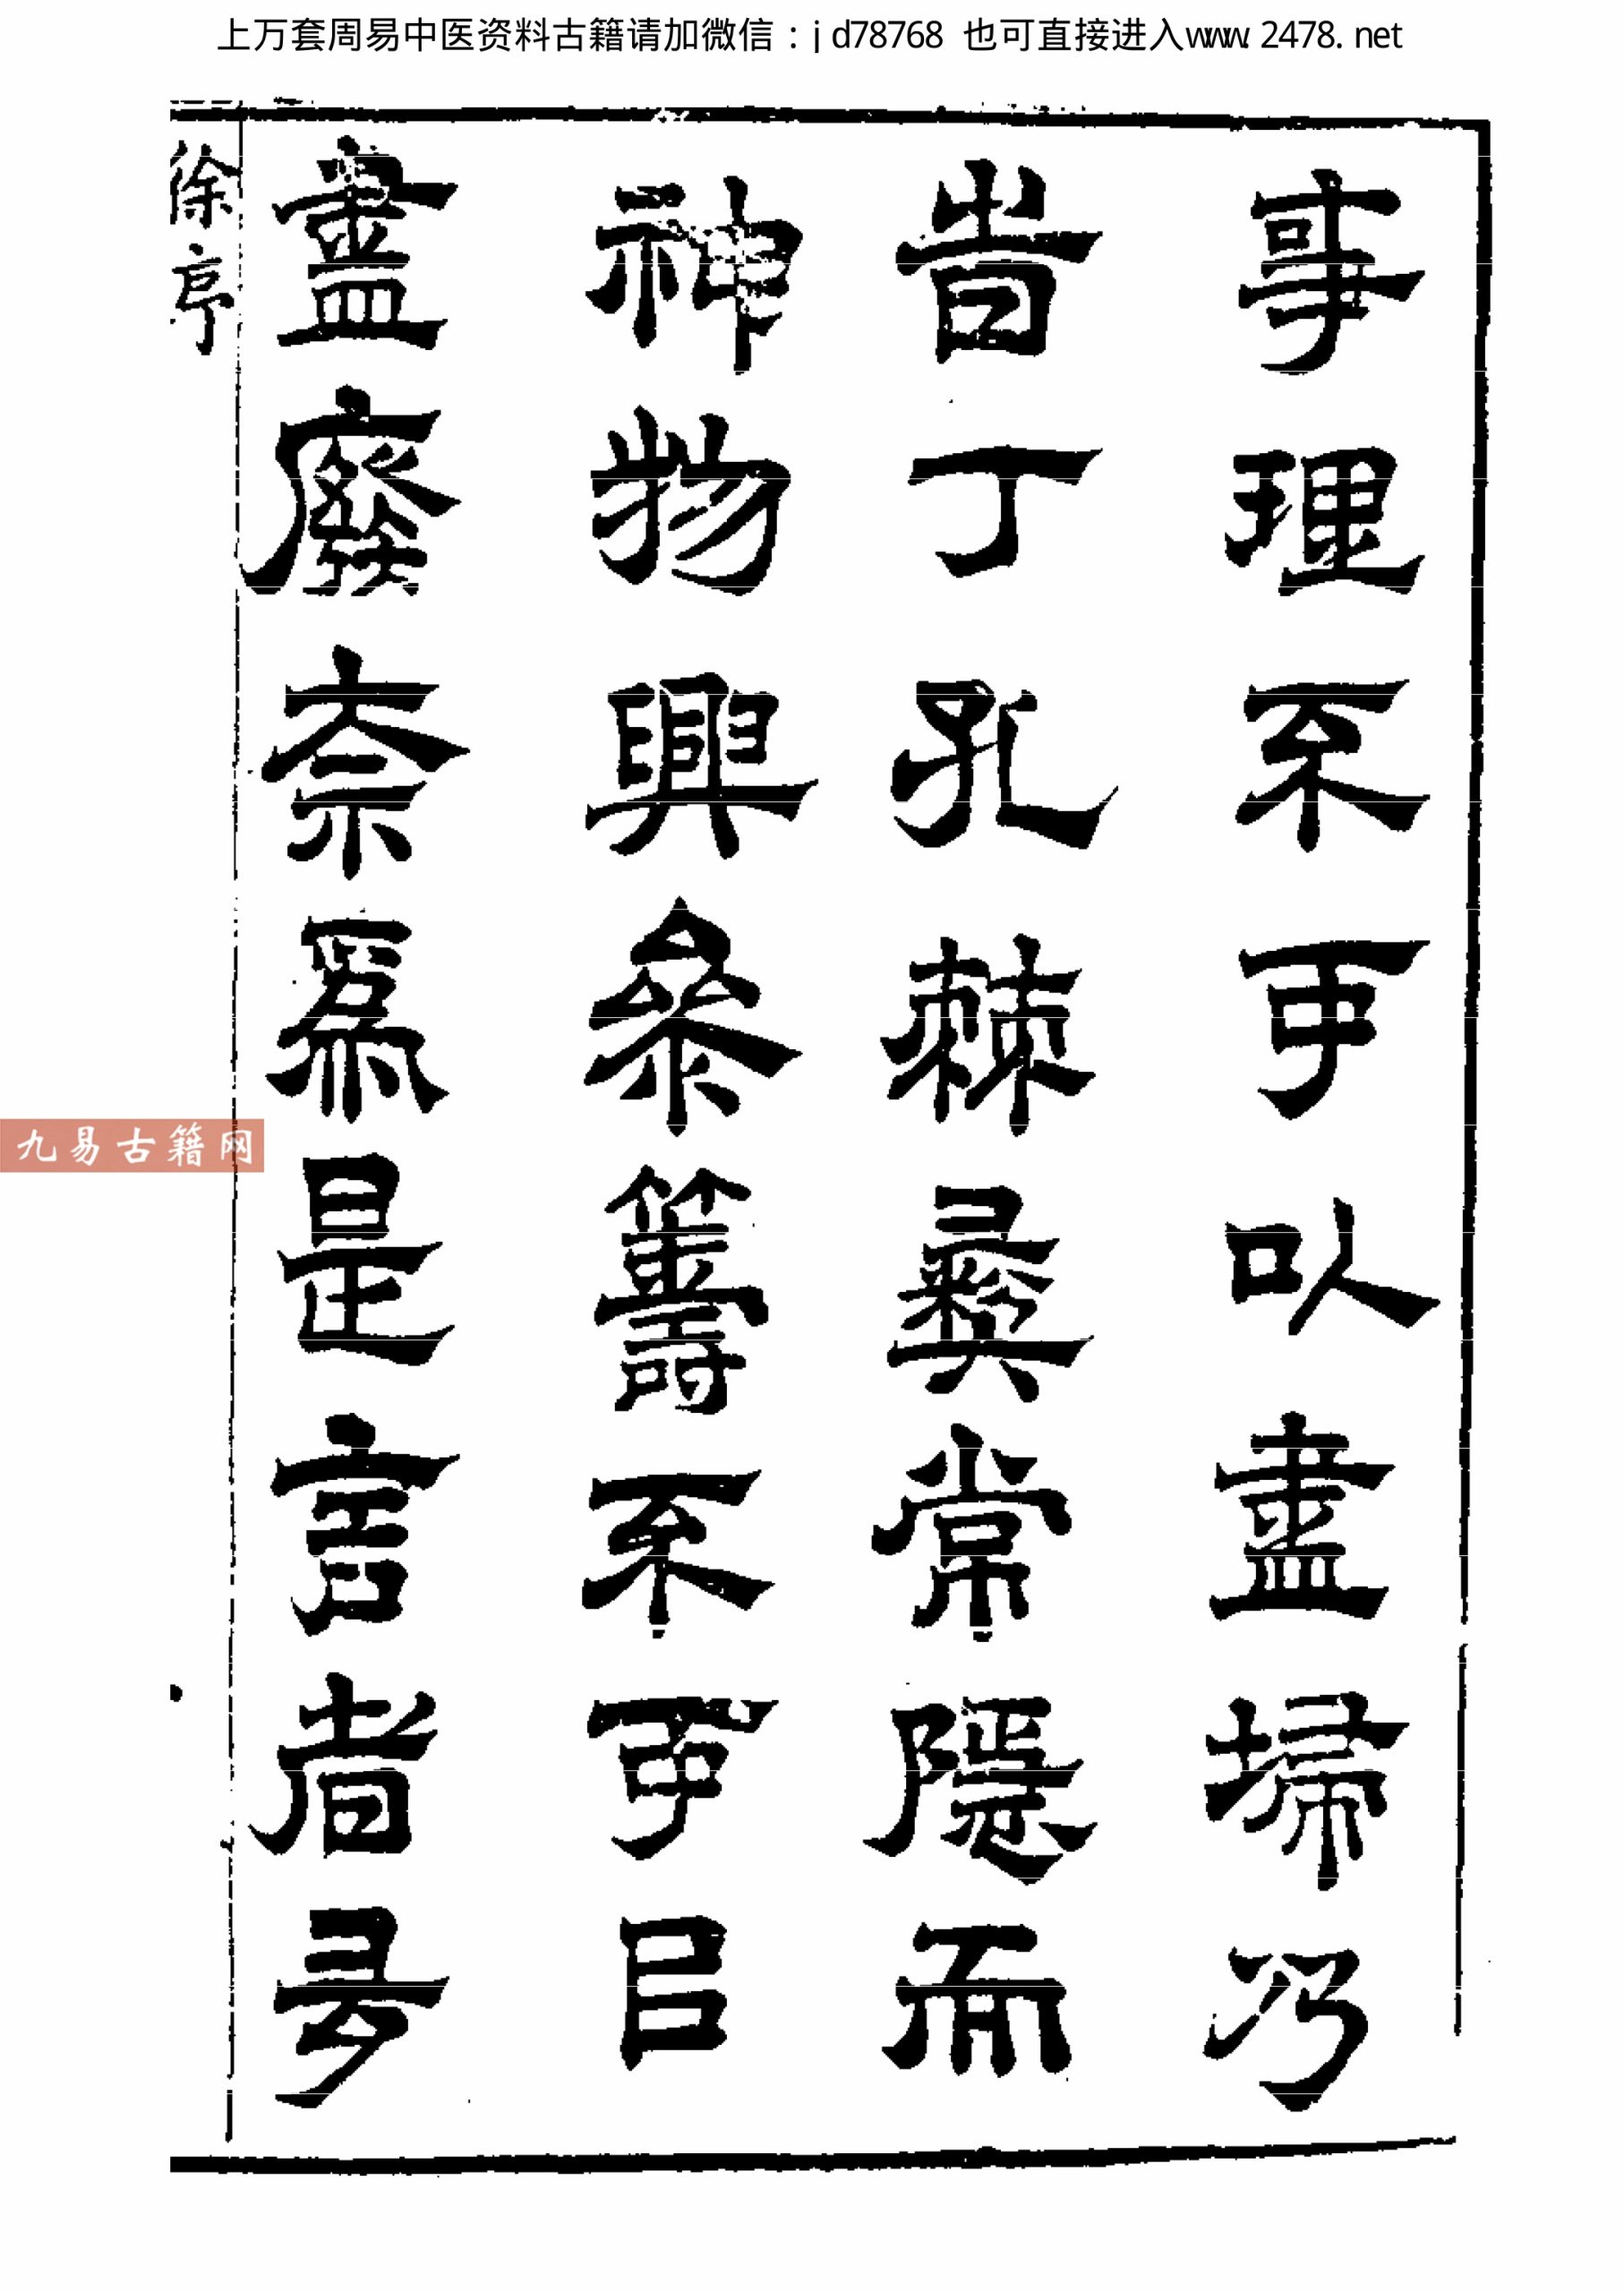 上万套周易中医资料古籍请加微信：jd78768 也可直接进入www.2478.net
事理不可以盡掃
旹丁孔棘彝常隱而
神物興參籌不可㠯
盡廢奈爲是言者
徐序
九易古籍网